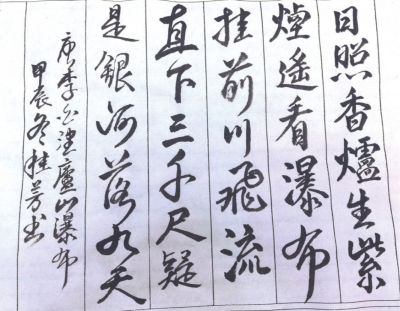 日照香爐生紫
煙遙看瀑布
挂前川飛流
直下三千尺疑
是銀河落九天
唐李白望廬山瀑布
甲辰冬桂芳书